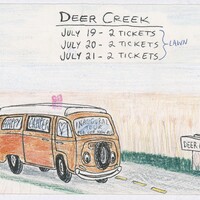 DEER CREEK
JULY 19 - 2 TICKETS
JULY 20 - 2 TICKETS } LAWN
JULY 21 - 2 TICKETS
HAPPY CAMPER
DEER